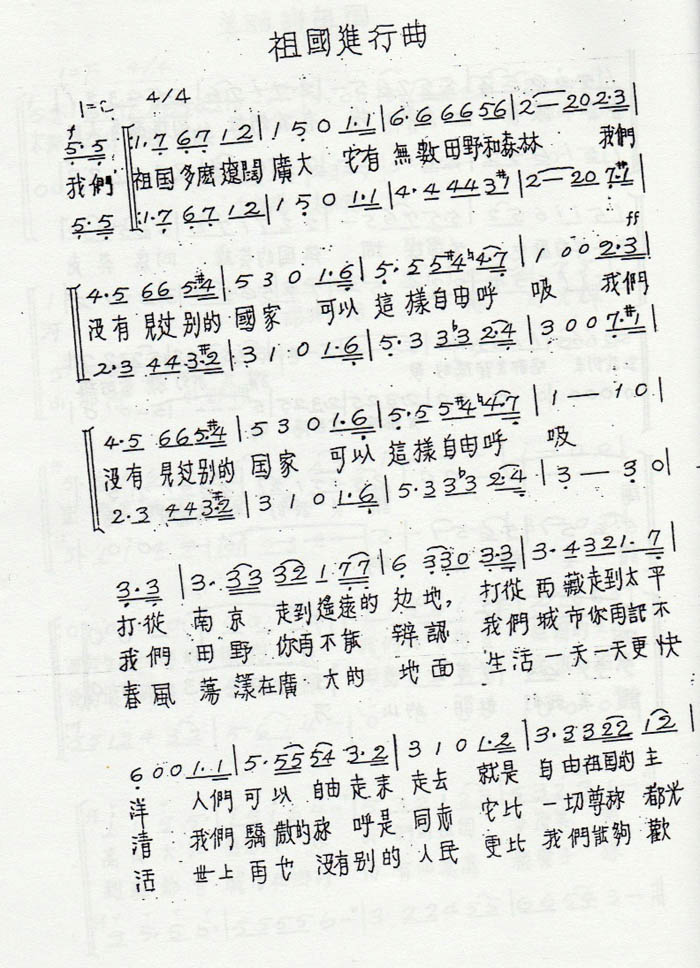 祖國進行曲
1=C 4/4
5.5 | 1.7 67 12 | 1 5 0 1.1 | 6.6 66 56 | 2 — 20 2.3 |
我們 祖国多麽遼闊廣大 它有無數田野和森林 我們
5.5 | 1.7 67 12 | 1 5 0 1.1 | 4.4 44 3#1 | 2 — 20 7.#1 |
ff
4.5 66 5#4 | 5 3 0 1.6 | 5.5 5#4 ♮4.7 | 1 0 0 2.3 |
没有見过别的國家 可以這樣自由呼 吸 我們
2.3 44 3.#2 | 3 1 0 1.6 | 5.3 3♭3 2.4 | 3 0 0 7.#1 |
4.5 66 5.#4 | 5 3 0 1.6 | 5.5 5#4 ♮4.7 | 1 — 1 0 |
没有見过别的国家 可以這樣自由呼 吸
2.3 44 3.#2 | 3 1 0 1.6 | 5.3 3♭3 2.4 | 3 — 3 0 |
3.3 | 3. 33 32 1 77 | 6 330 3.3 | 3.4 32 1.7 |
打從 南京 走到遙遠的边地, 打從西藏走到太平
我們田野 你再不能 辨認 我們城市你再記不
春風 蕩漾在廣大的 地面 生活一天一天更快
6 0 0 1.1 | 5.55 54 3.2 | 3 1 0 1.2 | 3.3 3 22 12 |
洋 人們可以 自由走来走去 就是自由祖国的主
清 我們驕傲的称呼是同志 它比一切尊称都光
活 世上再也没有别的人民 更比我們能夠歡